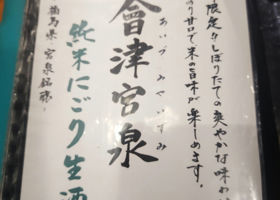 限定!!しぼりたての爽やかな味わ
のり甘口で米の旨味が楽しめます。
あいづみやいずみ
會津宮泉
純米にごり生酒
福島県 宮泉銘醸